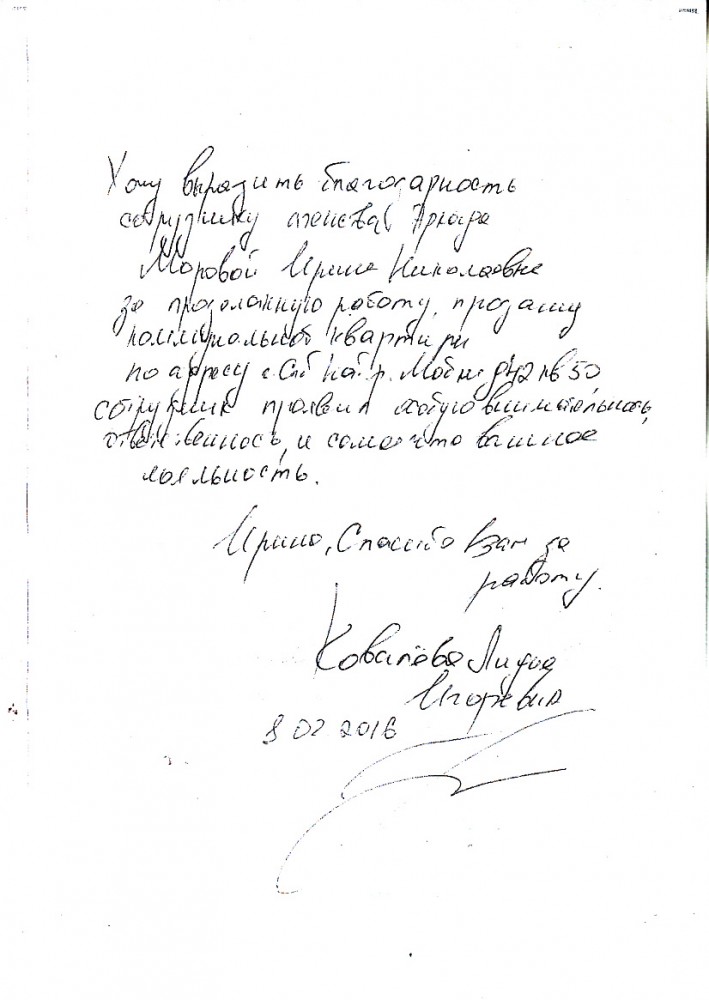 Хочу выразить благодарность
сотруднику агенства
Моровой Ирине Николаевне
за проделанную работу, продажу
коммунальной квартиры
по адресу г. Спб наб. р. Мойки д 42 кв 50
сотрудник проявил особую внимательность,
и самое что важное
лояльность.
Ирина, Спасибо Вам за
работу.
Ковалёва Лидия
Игоревна
8 02 2016